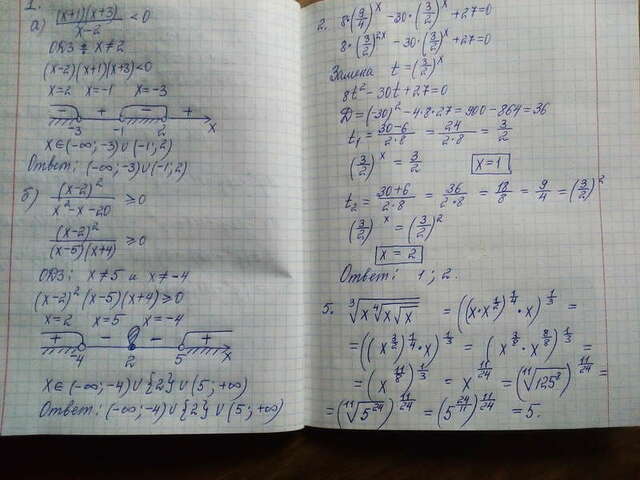 1.
а) (x+1)(x+3)/(x-2) < 0
ОДЗ: x≠2
(x-2)(x+1)(x+3)<0
x=2 x=-1 x=-3
- + - +
-3 -1 2 x
x∈(-∞;-3)∪(-1;2)
Ответ: (-∞;-3)∪(-1;2)
б) (x-2)²/(x²-x-20) ≥ 0
(x-2)²/((x-5)(x+4)) ≥ 0
ОДЗ: x≠5 и x≠-4
(x-2)²(x-5)(x+4)≥0
x=2 x=5 x=-4
+ - - +
-4 2 5 x
x∈(-∞;-4)∪{2}∪(5;+∞)
Ответ: (-∞;-4)∪{2}∪(5;+∞)
2. 8·(9/4)^x -30·(3/2)^x +27=0
8·(3/2)^2x -30·(3/2)^x +27=0
Замена t=(3/2)^x
8t²-30t+27=0
D=(-30)²-4·8·27=900-864=36
t₁=(30-6)/(2·8) = 24/(2·8) = 3/2
(3/2)^x = 3/2 x=1
t₂=(30+6)/(2·8) = 36/(2·8) = 18/8 = 9/4 = (3/2)²
(3/2)^x = (3/2)²
x=2
Ответ: 1; 2.
5. ∛(x ∜(x√x)) = ((x·x^(1/2))^(1/4)·x)^(1/3) =
=((x^(3/2))^(1/4)·x)^(1/3) = (x^(3/8)·x^(8/8))^(1/3) =
=(x^(11/8))^(1/3) = x^(11/24) = (¹¹√(125⁸))^(11/24) =
=(¹¹√(5²⁴))^(11/24) = (5^(24/11))^(11/24) = 5.